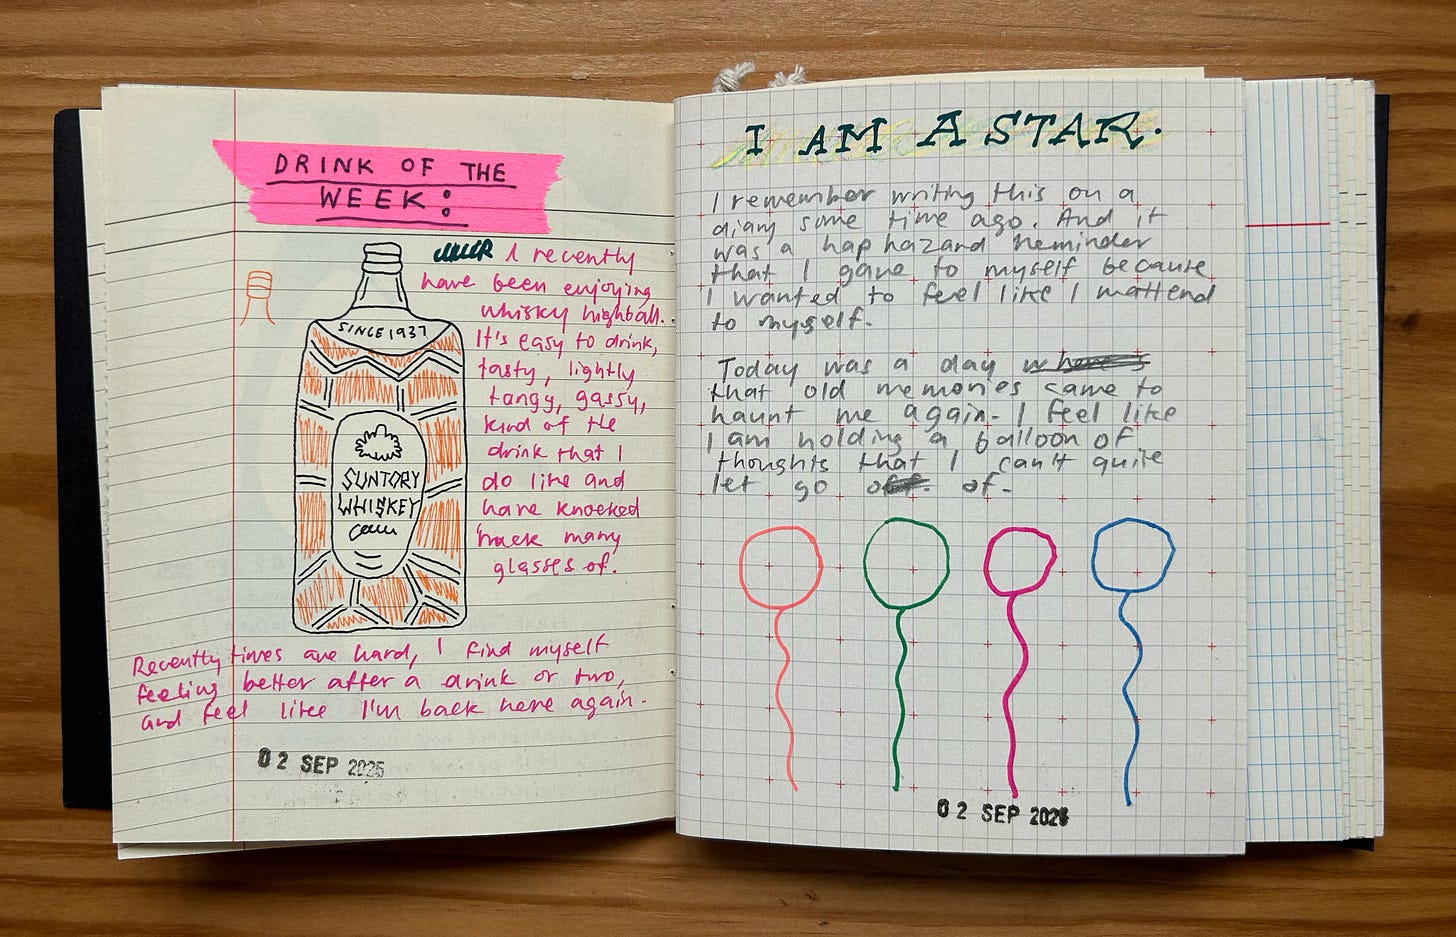 DRINK OF THE
WEEK:
I recently
have been enjoying
whisky highball.
It's easy to drink,
tasty, lightly
tangy, gassy,
kind of the
drink that I
do like and
have knocked
back many
glasses of.
SINCE 1937
SUNTORY
WHISKEY
Recently times are hard, I find myself
feeling better after a drink or two,
and feel like I'm back here again.
02 SEP 2025
I AM A STAR.
I remember writing this on a
diary some time ago. And it
was a hap hazard reminder
that I gave to myself because
I wanted to feel like I mattered
to myself.
Today was a day
that old memories came to
haunt me again. I feel like
I am holding a balloon of
thoughts that I can't quite
let go of.
02 SEP 2025